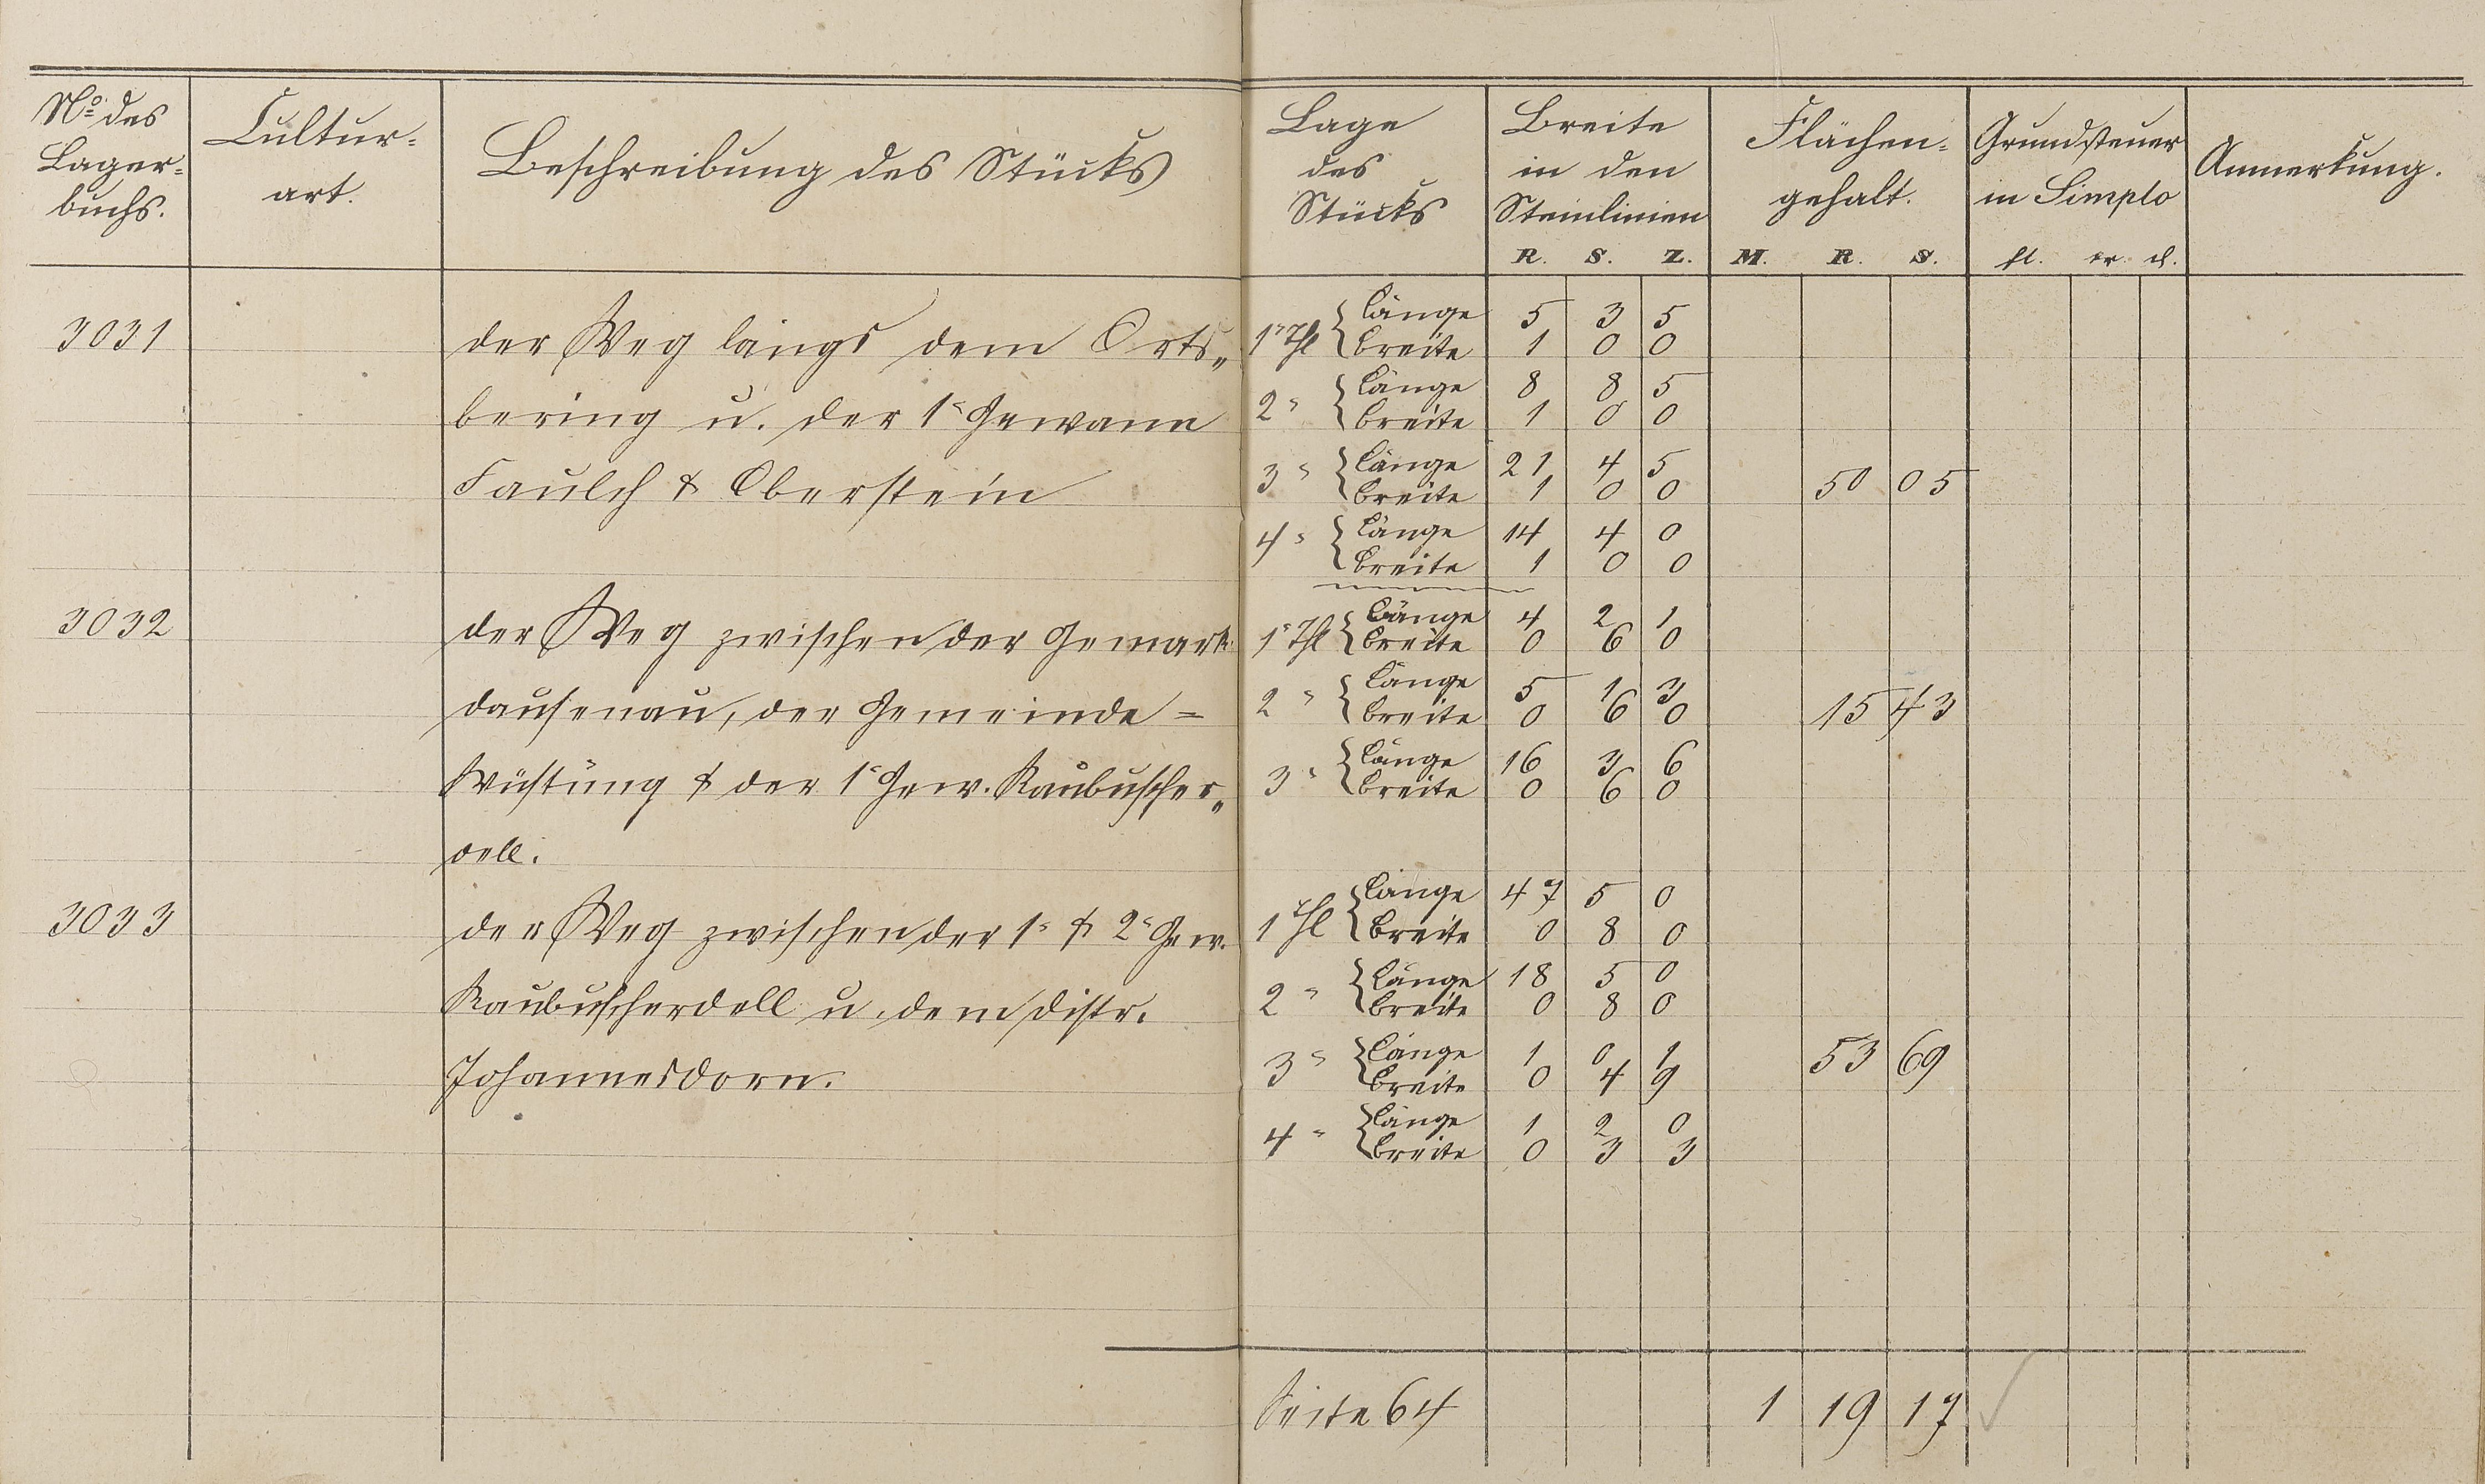 No des Lagerbuchs.
Cultur-
art.
Beschreibung des Stücks
Lage
des
Stücks
Breite
in den
Steinlinien
R. S. Z.
Flächen-
gehalt.
M. R. S.
Grundsteuer
in Simplo
fl. xr. d.
Anmerkung.
3031
der Weg längs dem Orts„
bering u. der 1r Gewann
Faulch & Oberstein
1r Thl länge 5 3 5
breite 1 0 0
2" länge 8 8 5
breite 1 0 0
3" länge 21 4 5
breite 1 0 0
50 05
4" länge 14 4 0
breite 1 0 0
3032
der Weg zwischen der Gemark:
dausenau, der Gemeinde =
Wüstung & der 1r Gew. Kaubuscher„
dell.
1r Thl länge 4 2 1
breite 0 6 0
2" länge 5 1 3
breite 0 6 0
15 43
3" länge 16 3 6
breite 0 6 0
3033
der Weg zwischen der 1r & 2r Gew.
Kaubuscherdell u. dem distr.
Johannesdorn.
1 Thl länge 47 5 0
breite 0 8 0
2" länge 18 5 0
breite 0 8 0
3" länge 1 0 1
breite 0 4 9
53 69
4" länge 1 2 0
breite 0 3 3
Seite 64 1 19 17